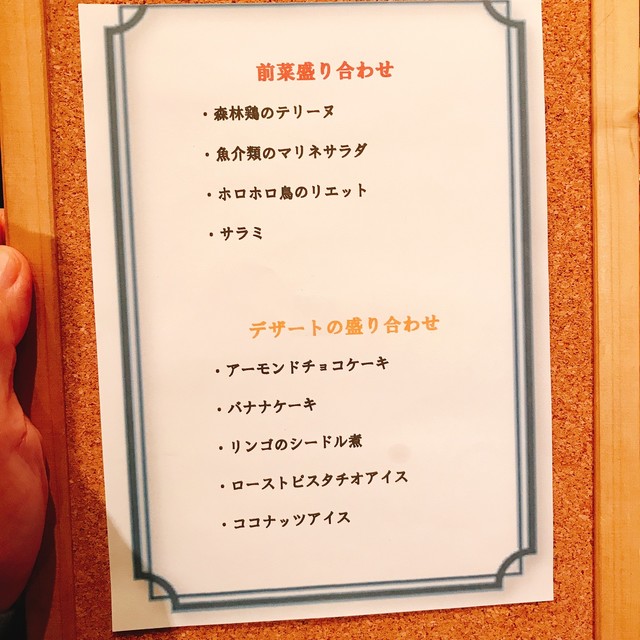 前菜盛り合わせ
・森林鶏のテリーヌ
・魚介類のマリネサラダ
・ホロホロ鳥のリエット
・サラミ
デザートの盛り合わせ
・アーモンドチョコケーキ
・バナナケーキ
・リンゴのシードル煮
・ローストピスタチオアイス
・ココナッツアイス